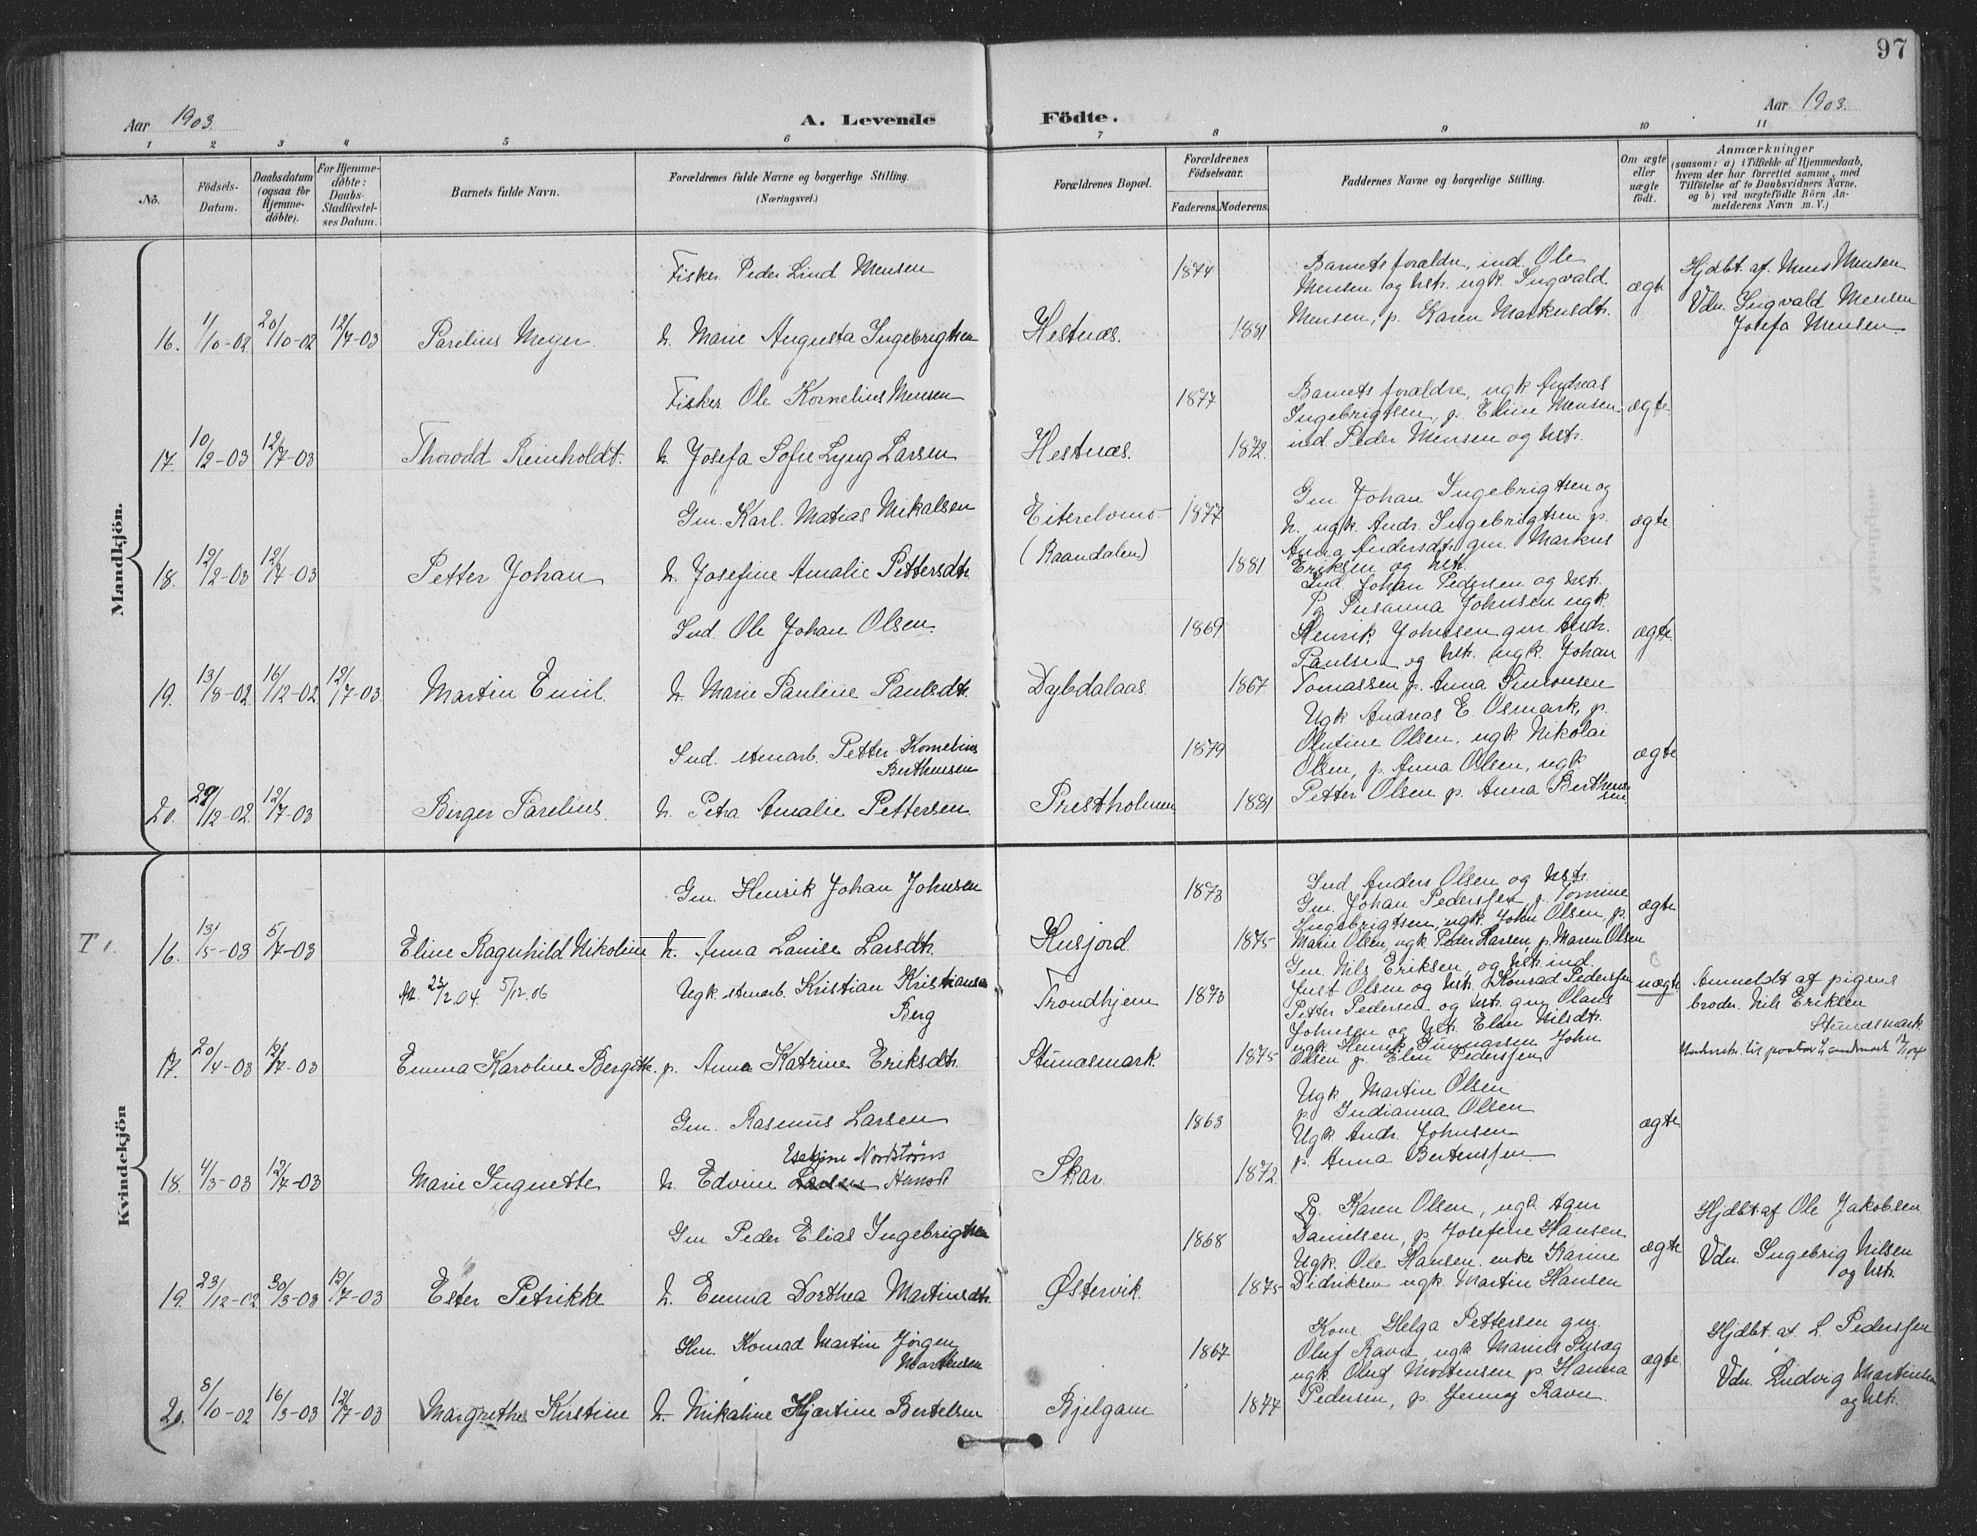 97
Aar 1903. A. Levende Födte. Aar 1903.
1 2 3 4 5 6 7 8 9 10 11
No.
Födsels-
Datum.
Daabsdatum
(ogsaa for
Hjemme-
döbte).
For Hjemme-
döbte:
Daabs-
Stadfæstel-
ses Datum.
Barnets fulde Navn.
Forældrenes fulde Navne og borgerlige Stilling.
(Næringsvei.)
Forældrenes Bopæl.
Forældrenes
Födselsaar.
Faderens. Moderens.
Faddernes Navne og borgerlige Stilling.
Om ægte
eller
uægte
födt.
Anmærkninger
(saasom: a) i Tilfælde af Hjemmedaab,
hvem der har forrettet samme, med
Tilföielse af to Daabsvidners Navne,
og b) ved uægtefödte Börn An-
melderens Navn m. V.)
Mandkjön.
16. 1/10-02 20/10-02 12/7-03 Parelius Meyer.
Fisker Peder Lind Mensen
h. Marie Augusta Ingebrigtsen
Hestnæs.
1874
1881
Barnets forældre, ind. Ole
Mensen og hstr. ugk. Ingvald
Mensen, p. Karen Markusdtr.
ægte
Hjdbt. af Mens Mensen
Vdn. Ingvald Mensen
Josefa Mensen
17. 10/2-03 12/7-03 Thorodd Reinholdt.
Fisker Ole Kornelius Mensen
h. Josefa Sofie Lyng Larsen
Hestnæs.
1877
1872.
Barnets forældre, ugk. Andreas
Ingebrigtsen, p. Edine Mensen
ind Peder Mensen og hstr.
ægte
18. 12/2-03 12/7-03 Petter Johan
Gm. Karl Matias Mikalsen
h. Josefine Amalie Pettersdtr.
Eiterelvmo
(Raandalen)
1877
1881
Gm Johan Ingebrigtsen og
h. ugk. Andr. Ingebrigtsen p.
Anna Andersdtr. gm. Markus
Eriksen og hstr.
ægte
19. 13/8-02 16/12-02 12/7-03 Martin Emil.
Ind. Ole Johan Olsen.
h. Marie Pauline Paulsdtr.
Dybdalaas.
1869
1867
Ind. Johan Pedersen og hstr.
Pg Susanna Johnsen ugk.
Henrik Johnsen gm. Andr.
Paulsen og hstr. ugk. Johan
Tomassen p. Anna Simonsen
ægte
20. 29/12-02 12/7-03 Birger Parelius.
Ind. stenarb. Petter Kornelius
Berthensen
h. Petra Amalie Pettersen.
Prestholmen
1879
1881
Ugk. Andreas E. Osmark, p.
Olufine Olsen, ugk. Nikolai
Olsen, p. Anna Olsen, ugk.
Petter Olsen p. Anna Berthen-
sen
ægte
Kvindekjön
16. 13/5-03 5/7-03 Eline Ragnhild Nikoline
Gm. Henrik Johan Johnsen
h. Anna Lovise Larsdtr.
Husjord.
1873
1875
Ind Anders Olsen og hstr.
Gm. Johan Pederssen p. Tomine
Ingebrigtsen, ugk. John Olsen, p.
Marie Olsen, ugk. Peder Larsen, p. Maren Olsen
ægte
17. 20/4-03 12/7-03 Emma Karoline Bergitte
At. 23/2.04. 5/12.06
Ugk. stenarb. Kristian Kristiansen
Berg
p. Anna Katrine Eriksdtr.
Trondhjem
Stunæsmark.
1873
1875
Gm. Nils Eriksen, og hstr. ind.
Just Olsen og hstr. Konrad Pederssen
Petter Pedersen og hstr. gm. Olaus
Johnsen og hstr. Elen Nilsdtr.
ugk. Henrik Gunnarsen John
Olsen p. Elen Pederssen
uægte
Anmeldt af pigens
broder Nils Eriksen
Stunæsmark
18. 4/3-03 12/7-03 Marie Ingnette
Gm. Rasmus Larsen
Nordstrøms
h. Edvine
Skar
1863
1872.
Ugk Martin Olsen
p. Indianna Olsen
Ugk Andr. Johnsen
p. Anna Bertenssen
ægte
19. 23/12-02 30/3-03 12/7-03 Ester Petrikke
Gm Peder Elias Ingebrigtsen
h. Emma Dorthea Martinsdtr.
Østervik.
1868
1875
Pg. Karen Olsen, ugk. Agur
Danielsen, p. Josefine Hansen
Ugk. Ole Hansen. enke Karine
Didriksen ugk. Martin Hansen
ægte
Hjdbt. af Ole Jakobsen
Vdn. Ingebrig Nilsen
og hstr.
20. 8/10-02 16/3-03 12/7-03 Margrethe Kirstine
Gm. Konrad Martin Jørgen
Mortensen
h. Mikaline Hjærtine Bertelsen
Bjelgam
1867
1877
Kone Helga Pettersen gm.
Oluf Ravn ugk
ugk. Oluf Mortensen p. Hanna
Pedersen, p. Jenny Ravn.
ægte.
Hjdbt. af L. Pederssen
Vdn. Ludvig Martinsen
og hstr.